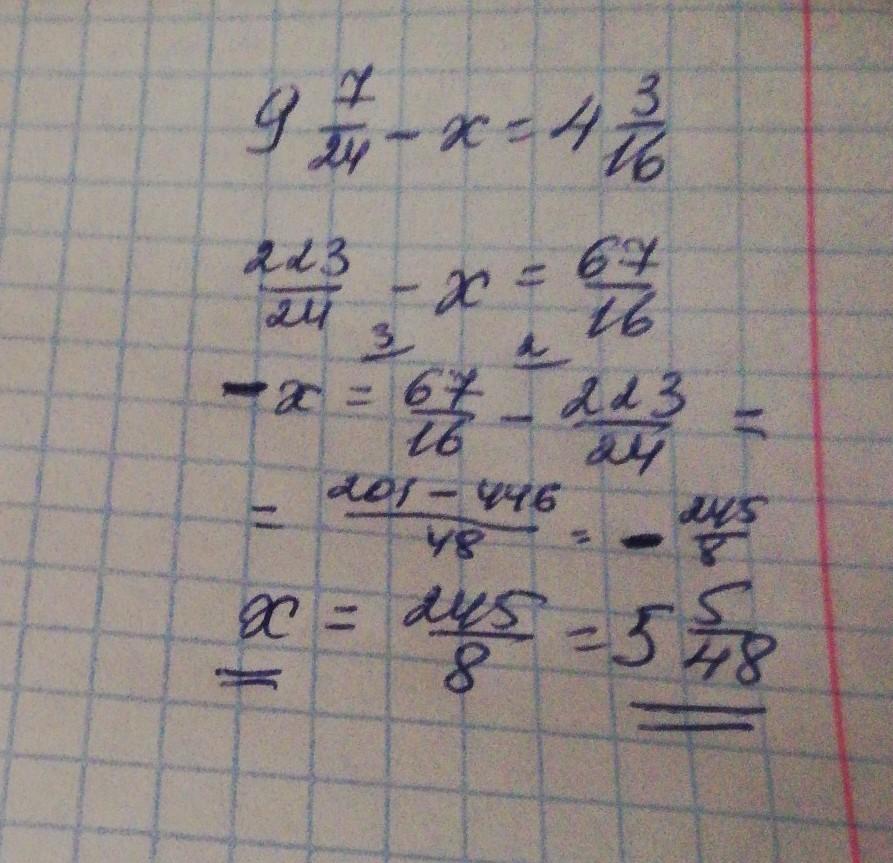 9 7/24 - x = 4 3/16
223/24 - x = 67/16
3 2
- x = 67/16 - 223/24 =
= 201 - 446/48 = - 245/8
x = 245/8 = 5 5/48